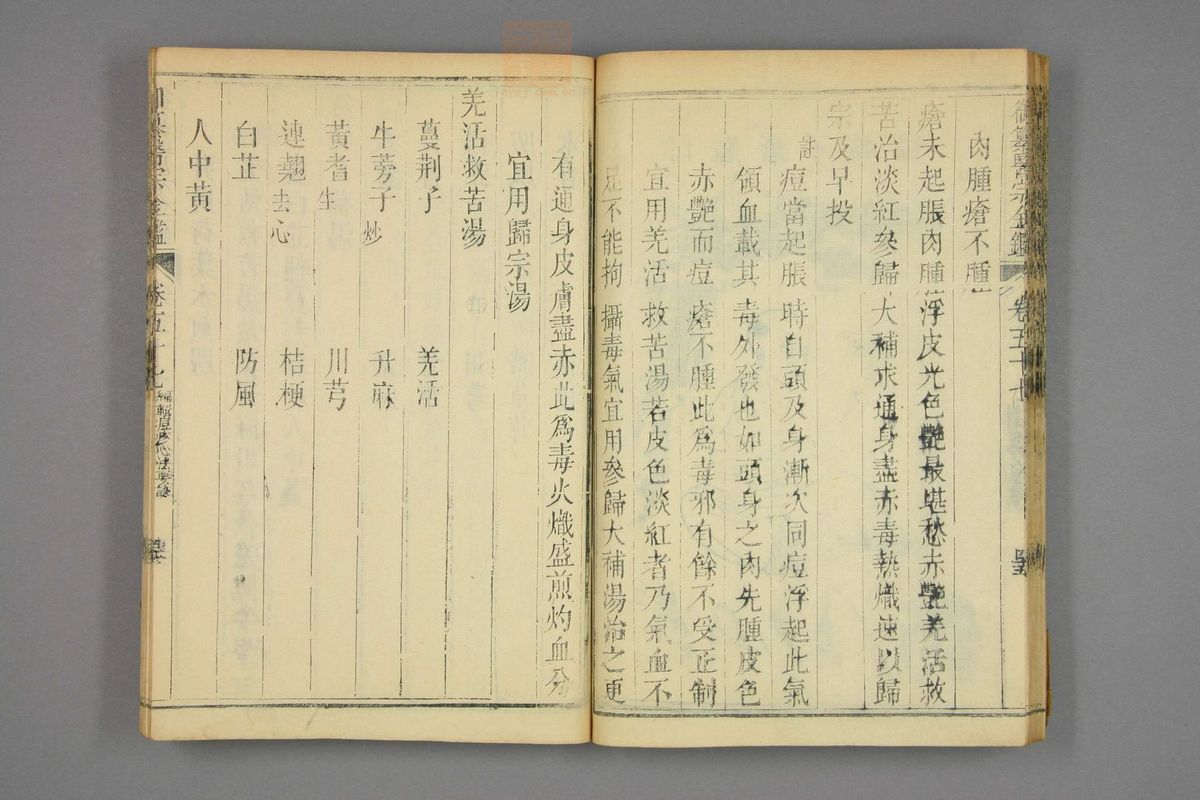 御纂醫宗金鑑 卷五十七
肉腫瘡不腫
瘡未起脹肉腫浮皮光色艷最堪愁赤艷羌活救
苦治淡紅參歸大補求通身盡赤毒熱熾速以歸
宗及早投
註 痘當起脹時自頭及身漸次同痘浮起此氣
領血載其毒外發也如頭身之肉先腫皮色
赤艷而痘瘡不腫此爲毒邪有餘不受正制
宜用羌活救苦湯若皮色淡紅者乃氣血不
足不能拘攝毒氣宜用參歸大補湯治之更
有通身皮膚盡赤此爲毒火熾盛煎灼血分
宜用歸宗湯
羌活救苦湯
蔓荆子 羌活
牛蒡子炒 升麻
黃耆生 川芎
連翹去心 桔梗
白芷 防風
人中黃
醫宗金鑑 卷五十七 編輯痘疹心法要訣